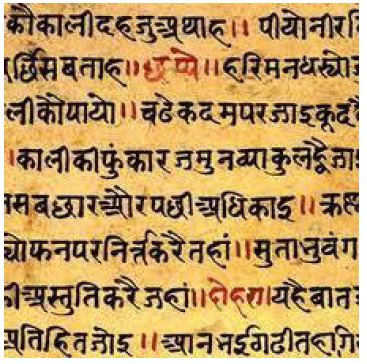 कौकालीदहजुअथाह॥ पीयोनीर
र्छिसबताह॥छप्पै॥हरिमनधस्यो
लीकौपायो॥बढेकदमपरजाइकूद
।कालीकीफुंकारजमुनव्याकुलह्वैजा
नसबछारऔरपछीअधिकाइ॥
योफनपरनिर्त्तकरैतहां॥सुतानुवंग
अस्तुतिकरैजहां॥दोहरा॥यहैबात
प्रतिहितजोइ॥आनभईगढीतहा